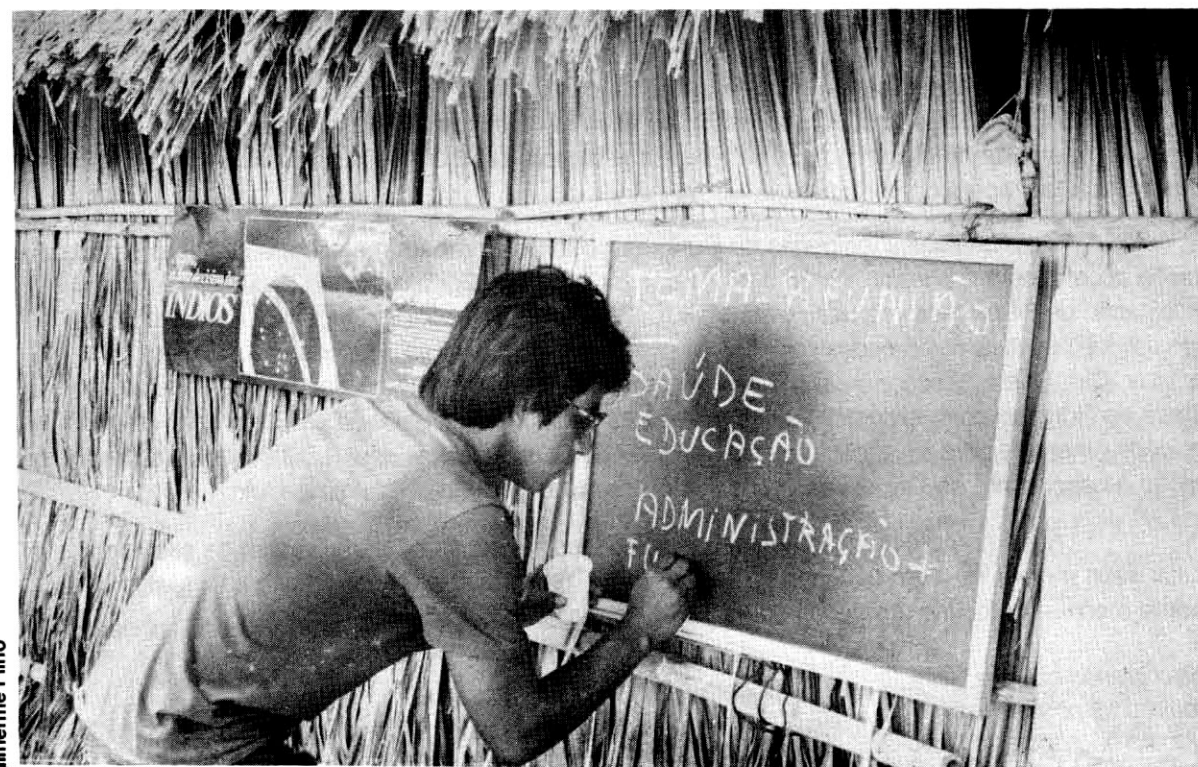 ÍNDIOS
TEMA REUNIÃO
SAÚDE
EDUCAÇÃO
ADMINISTRAÇÃO +
FU